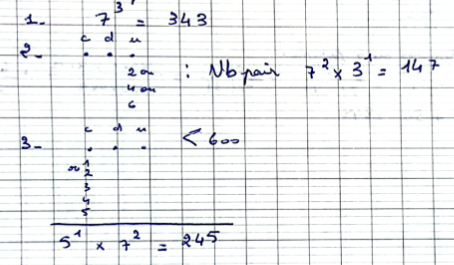 1. 7³ = 343
c d u
2. . . .
2 ou : Nb pair 7² × 3¹ = 147
4 ou
6
c d u
3. . . . < 600
ou 1
2
3
4
5
5¹ × 7² = 245